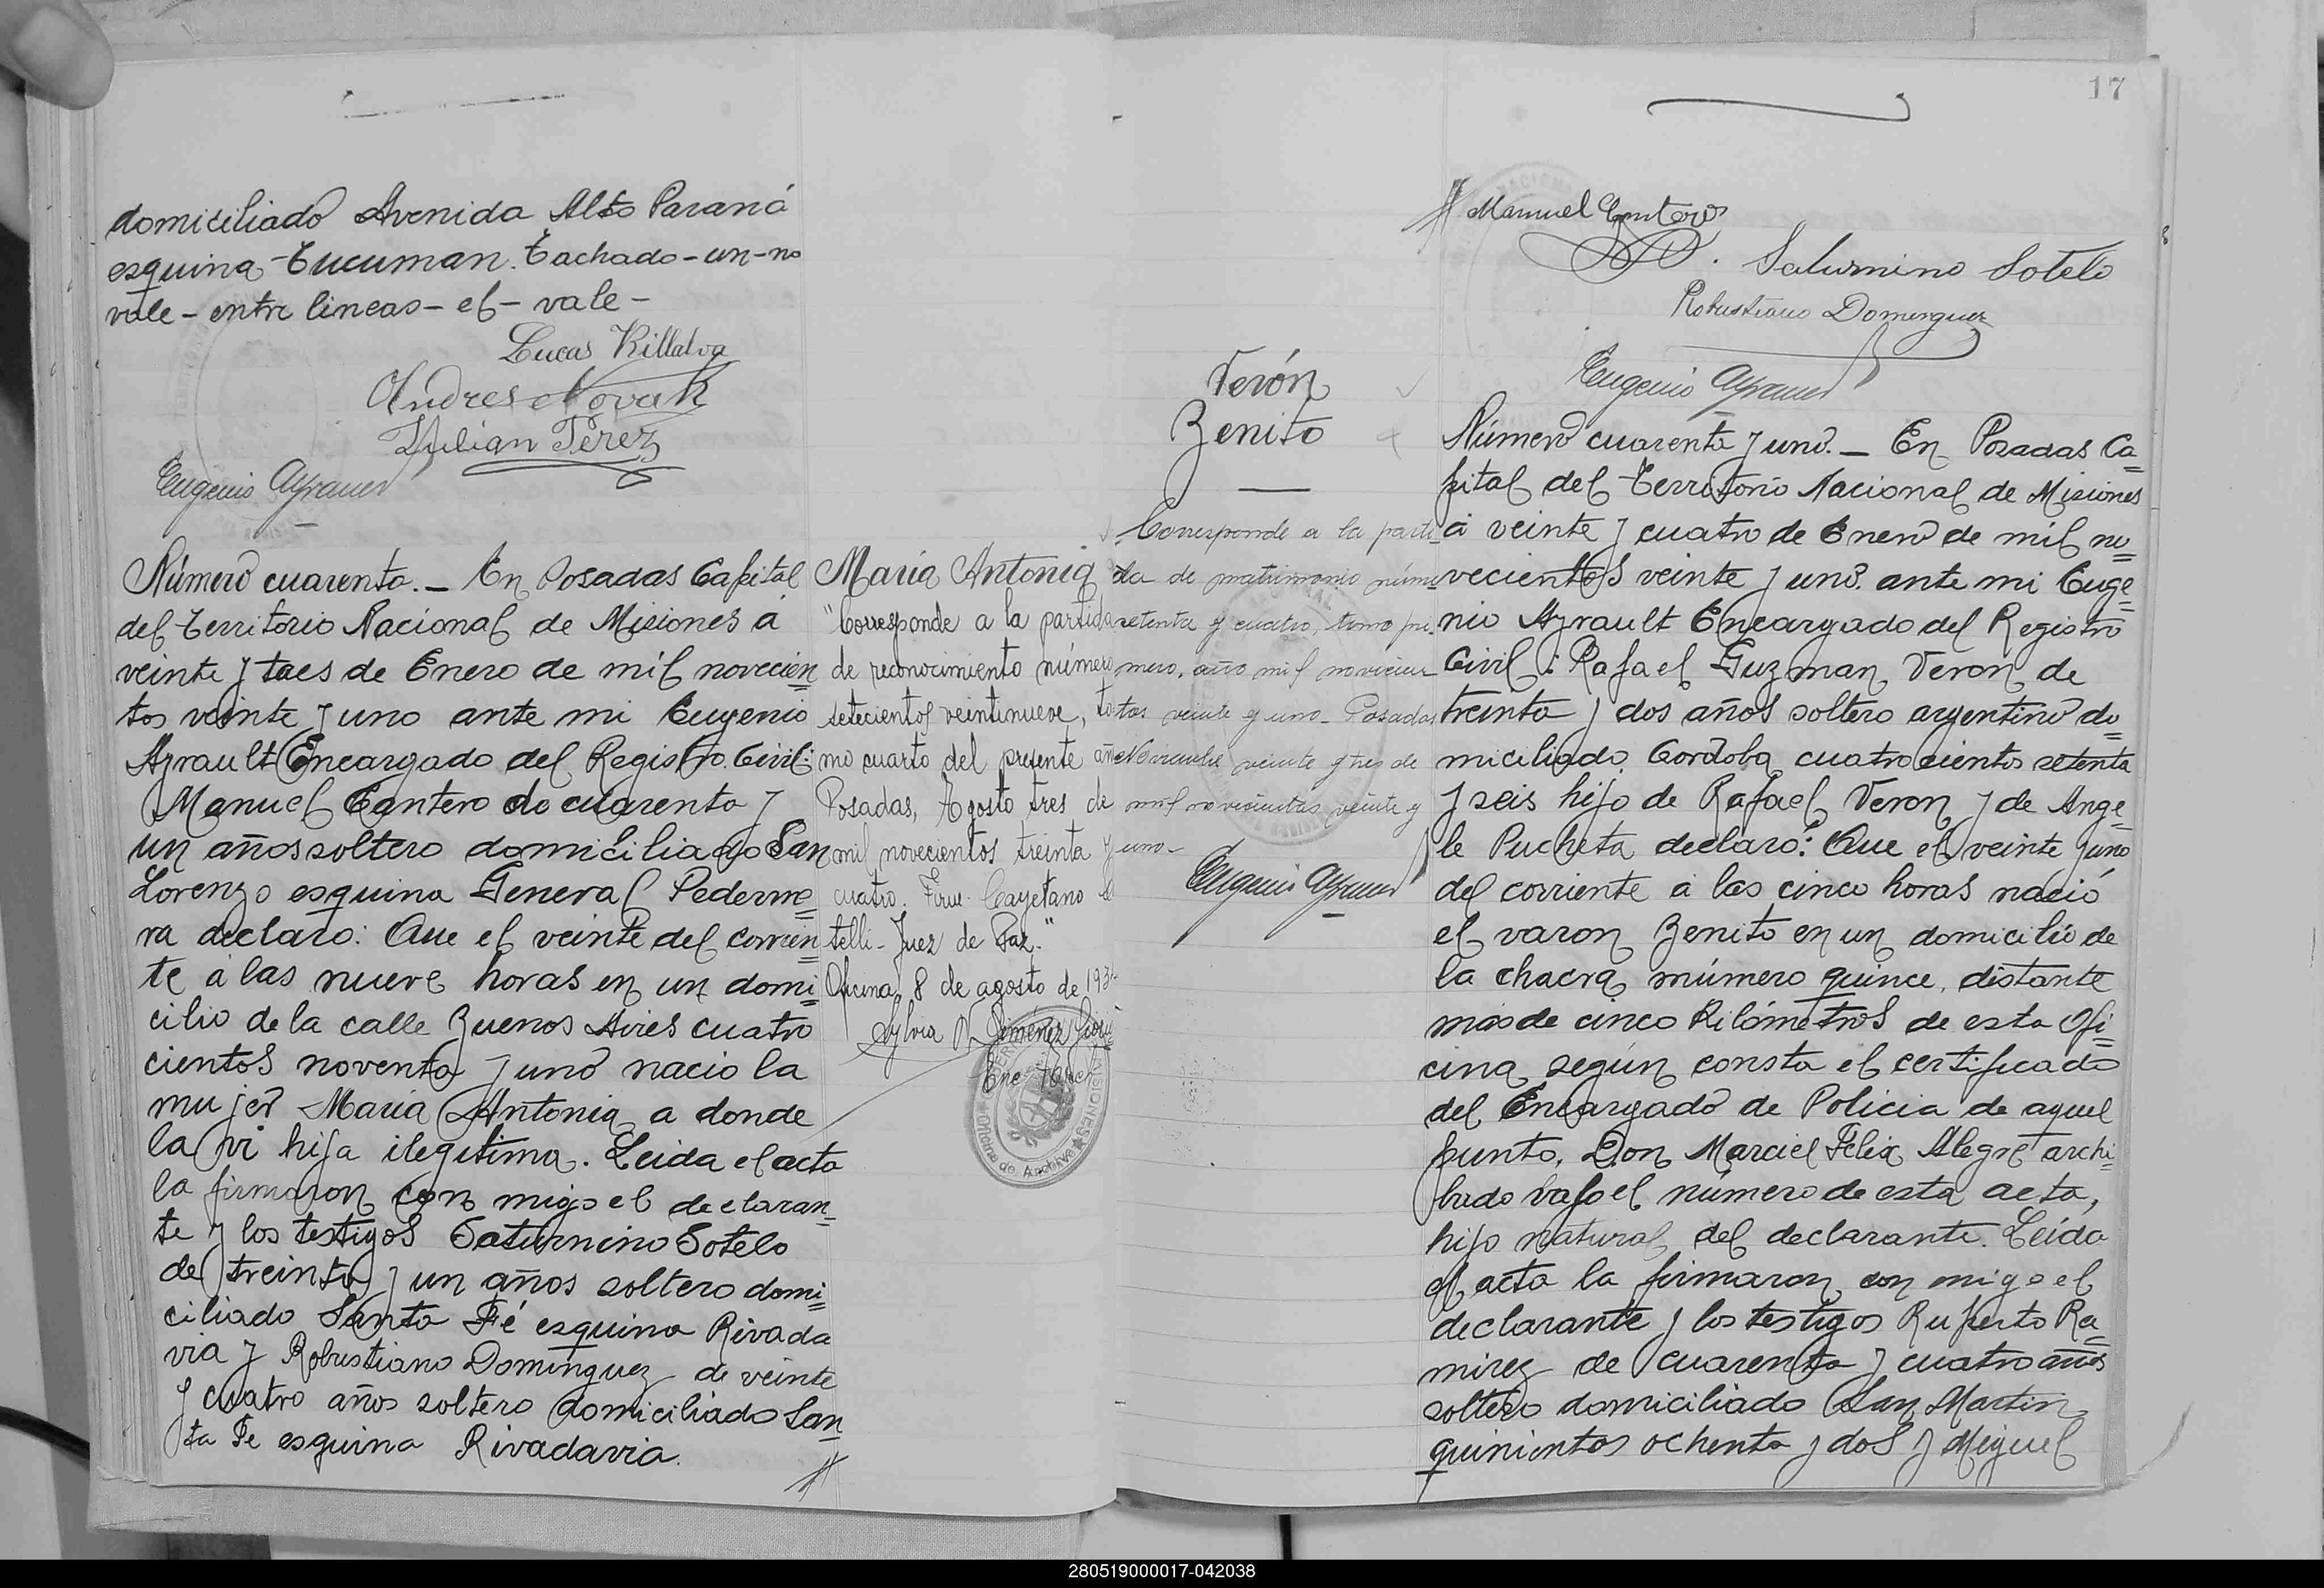 domiciliado Avenida Alto Paraná
esquina Tucuman. Tachado-un-no
vale-entre lineas-el-vale-
Lucas Villalva
Andres Novak
Julian Perez
Eugenio Ayrault
Número cuarenta._ En Posadas Capital
del Territorio Nacional de Misiones á
veinte y tres de Enero de mil novecien=
tos veinte y uno ante mi Eugenio
Ayrault Encargado del Registro Civil:
Manuel Cantero de cuarenta y
un años soltero domiciliado San
Lorenzo esquina General Pederne=
ra declaró: Que el veinte del corrien=
te á las nueve horas en un domi=
cilio de la calle Buenos Aires cuatro
cientos noventa y uno nacio la
mujer Maria Antonia a donde
la vi hija ilegitima. Leida el acta
la firmaron con migo el declaran=
te y los testigos Saturnino Sotelo
de treinta y un años soltero domi=
ciliado Santa Fé esquina Rivada
via y Robustiano Dominguez de veinte
y cuatro años soltero domiciliado San
ta Fe esquina Rivadavia.
María Antonia
"Corresponde a la partida
de reconocimiento número
setecientos veintinueve, to
mo cuarto del presente año
Posadas, Agosto tres de
mil novecientos treinta y
cuatro. Firm. Cayetano
telli-Juez de Paz."
Oficina, 8 de agosto de 193
Sylvia Gimenez
Enc. Arch
Oficina de Archivo
MISIONES
17
Manuel Cantero
Saturnino Sotelo
Robustiano Dominguez
Eugenio Ayrault
Verón
Benito
Corresponde a la parti
da de matrimonio núme
setenta y cuatro, tomo pri-
mero, año mil novecien
tos veinte y uno-Posadas
Noviembre veinte y tres de
mil novecientos veinte y
uno-
Eugenio Ayrault
Número cuarenta y uno._ En Posadas Ca=
pital del Territorio Nacional de Misiones
á veinte y cuatro de Enero de mil no=
vecientos veinte y uno. ante mi Euge=
nio Ayrault Encargado del Registro
Civil: Rafael Guzman Veron de
treinta y dos años soltero argentino do=
miciliado Cordoba cuatrocientos setenta
y seis hijo de Rafael Veron y de Ange=
le Pucheta declaró: Que el veinte y uno
del corriente á las cinco horas nació
el varon Benito en un domicilio de
la chacra número quince, distante
mas de cinco Kilómetros de esta Ofi=
cina según consta el certificado
del Encargado de Policia de aquel
punto, Don Marciel Felix Alegre archi=
bado bajo el número de esta acta,
hijo natural del declarante. Leida
el acta la firmaron con migo el
declarante y los testigos Ruperto Ra=
mirez de cuarenta y cuatro años
soltero domiciliado San Martin
quinientos ochenta y dos y Miguel
280519000017-042038